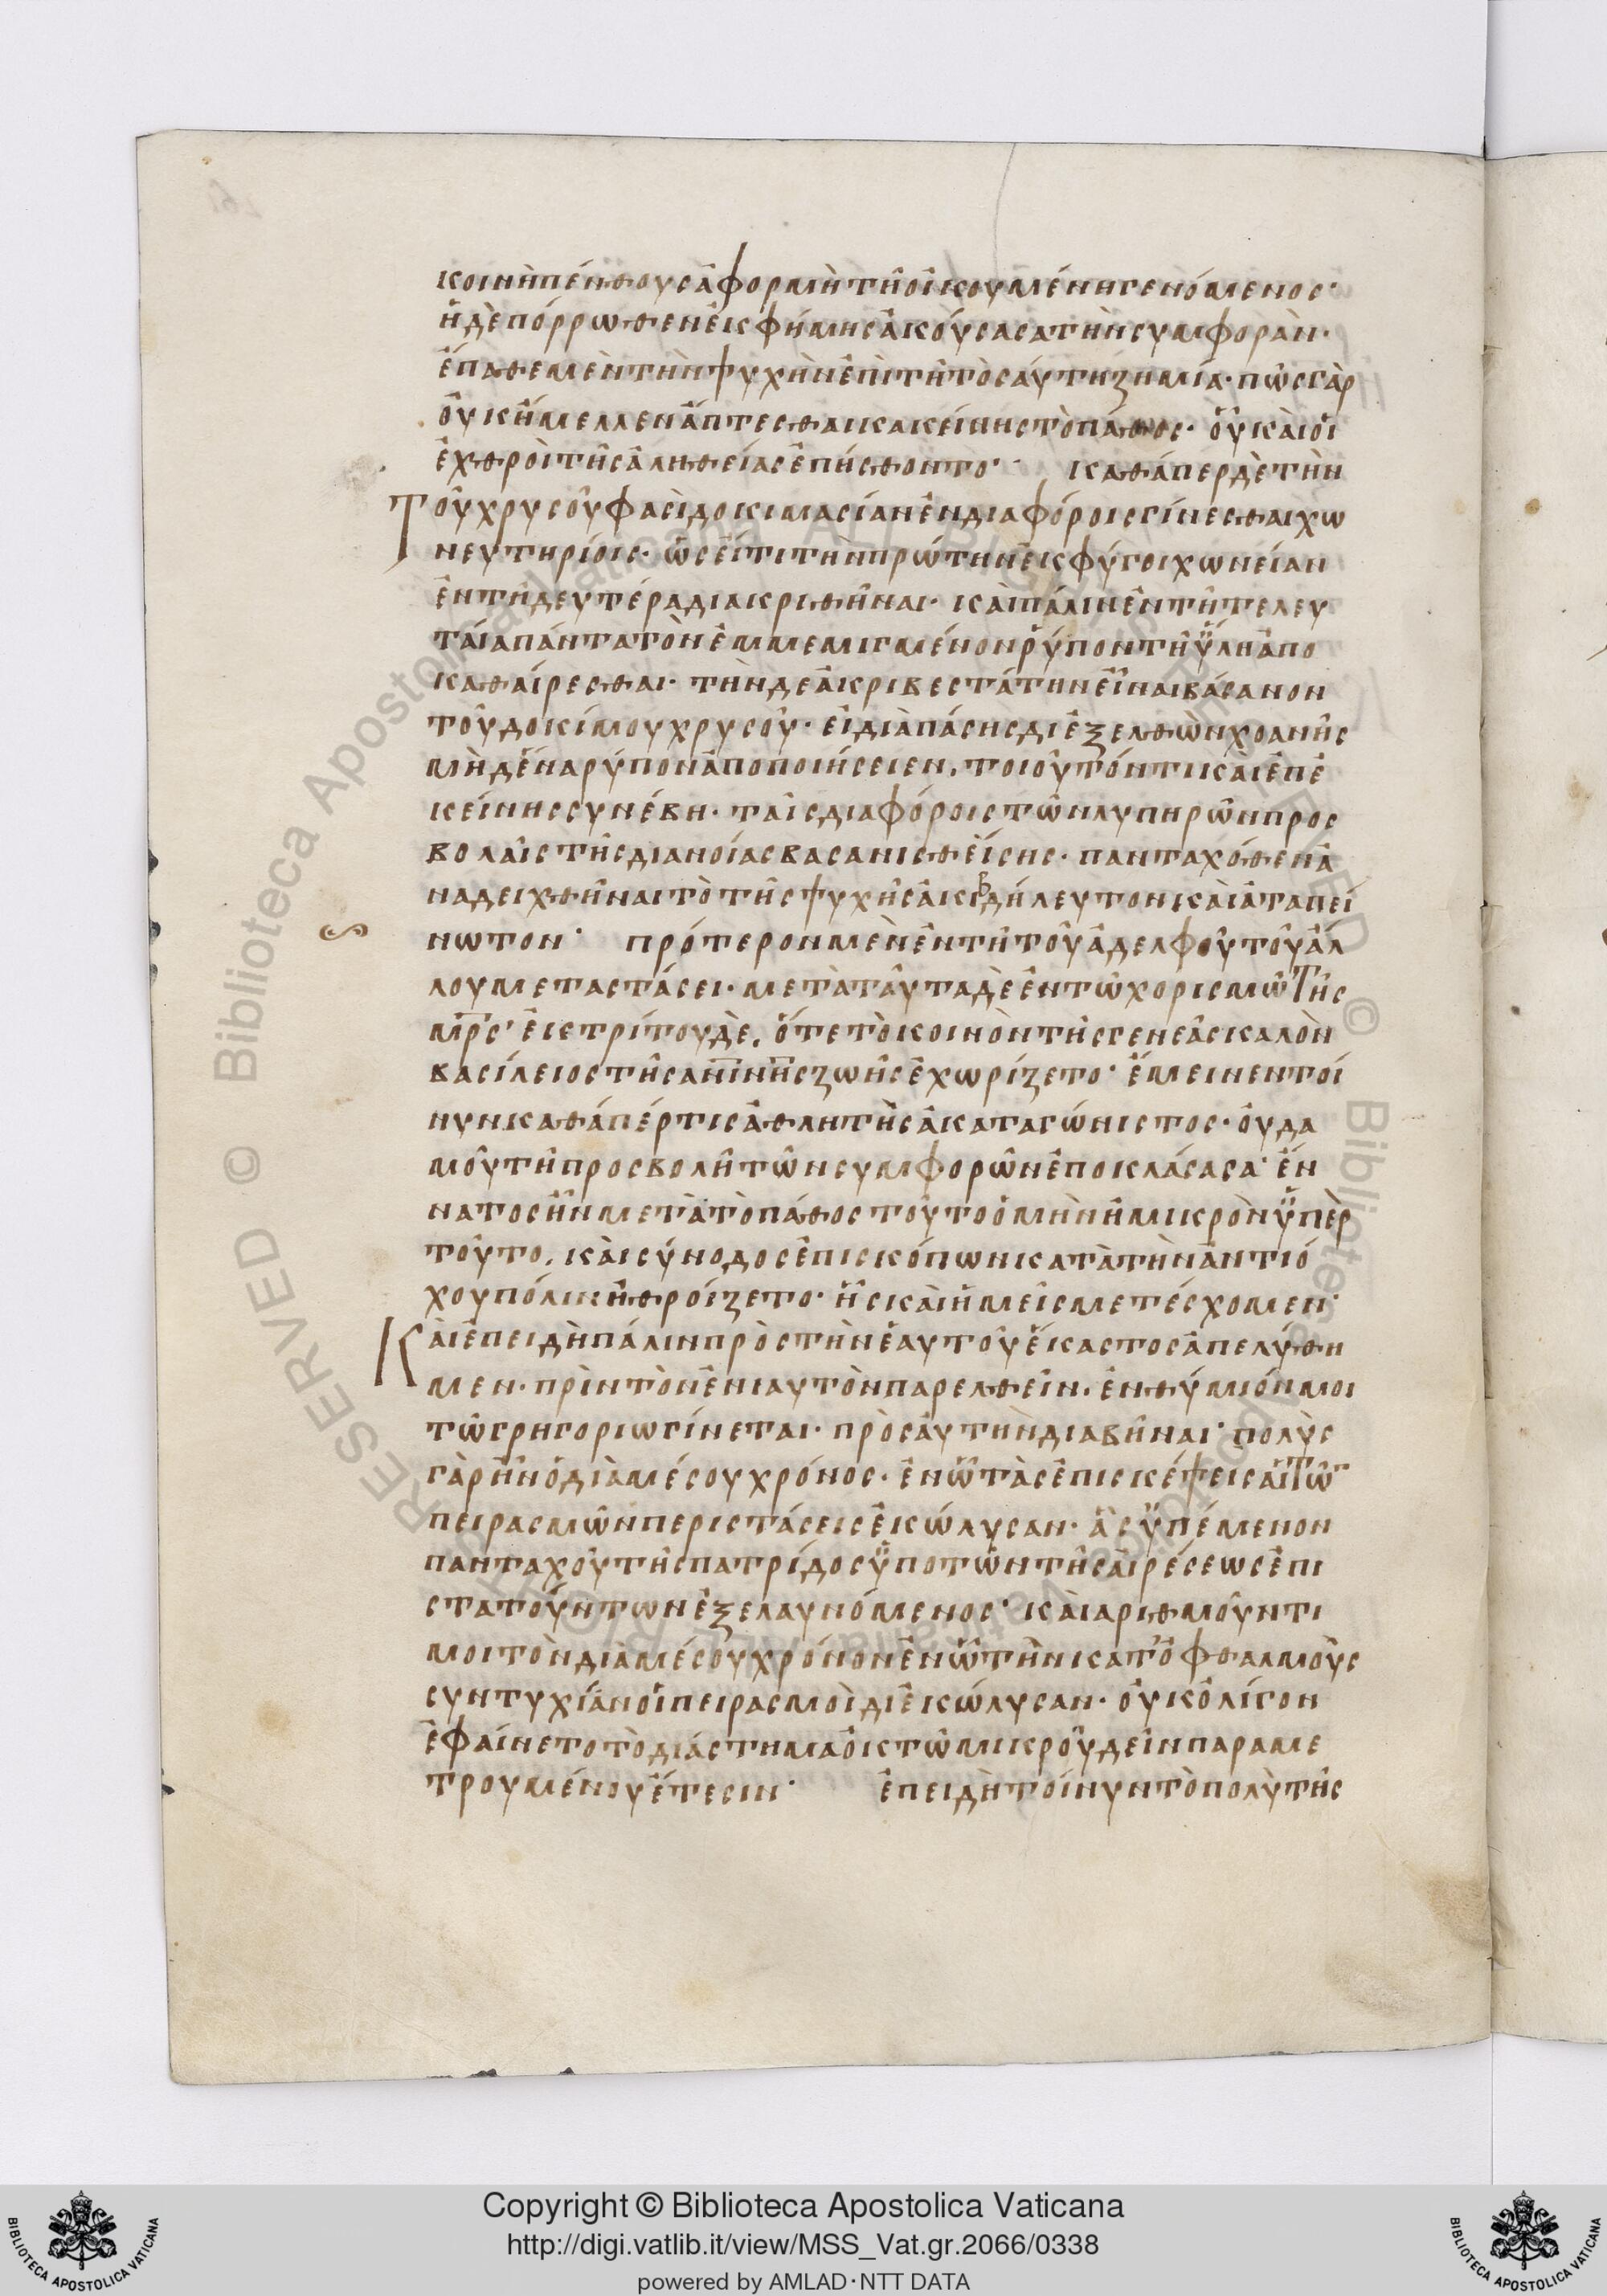 κοινὴ πένθους ἀφορμὴ τῆ οἰκουμένη γενόμενος·
ἡ δὲ πόρρωθεν ἐκ φήμης ἀκούσασα τὴν συμφορὰν·
ἔπαθε μὲν τὴν ψυχὴν ἐπὶ τῆ τοσαύτη ζημία· πῶς γὰρ
οὐκ ἤμελλεν ἅπτεσθαι κακείνης τὸ πάθος· οὗ καὶ οἱ
ἐχθροὶ τῆς ἀληθείας ἐπήσθοντο· καθάπερ δὲ τὴν
Τοῦ χρυσοῦ φασὶ δοκιμασίαν ἐν διαφόροις γίνεσθαι χω
νευτηρίοις· ὡς εἴ τι τὴν πρώτην ἐκφύγοι χωνείαν
ἐν τῆ δευτέρα διακριθῆναι· καὶ πάλιν ἐν τῆ τελευ
ταία πάντα τὸν ἐμμεμιγμένον ῥύπον τῆ ὕλη ἀπο
καθαίρεσθαι· τὴν δε ἀκριβεστάτην εἶναι βάσανον
τοῦ δοκίμου χρυσοῦ· εἰ διὰ πάσης διεξελθὼν χοανῆς
μὴδένα ῥύπον ἀποποιήσειεν, τοιοῦτόν τι καὶ ἐπ' ἐ
κείνης συνέβη· ταῖς διαφόροις τῶν λυπηρῶν προς
βολαῖς τῆς διανοίας βασανισθείσης· πανταχόθεν ἀ
ναδειχθῆναι τὸ τῆς ψυχῆς ἀκιβδήλευτον καὶ ἀταπεί
νωτον· πρότερον μὲν ἐν τῆ τοῦ ἀδελφοῦ τοῦ ἀλ
λου μεταστάσει· μετὰ ταῦτα δὲ ἐν τῶ χορισμῶ τῆς
μρς· ἐκ τρίτου δὲ, ὅτε τὸ κοινὸν τῆς γενεᾶς καλὸν
βασίλειος τῆς ανινης ζωῆς ἐχωρίζετο· ἔμεινεν τοί
νυν καθάπέρ τις ἀθλητὴς ἀκαταγώνιστος· οὐδα
μοῦ τῆ προσβολῆ τῶν συμφορῶν ἐποκλάσασα· ἔν
νατος ἦν μετὰ τὸ πάθος τοῦτο ὁ μὴν ἢ μικρὸν ὑπὲρ
τοῦτο, καὶ σύνοδος ἐπισκόπων κατὰ τὴν ἀντιό
χου πόλιν ἠθροίζετο· ἧς καὶ ἡμεῖς μετέσχομεν·
Καὶ ἐπειδὴ πάλιν πρὸς τὴν ἑαυτοῦ ἕκαστος ἀπελύθη
μεν· πρὶν τὸν ἐνιαυτὸν παρελθεῖν, ἐνθύμιόν μοι
τῶ γρηγοριω γίνεται· πρὸς αὐτὴν διαβῆναι· πολὺς
γὰρ ἦν ὁ διὰ μέσου χρόνος· ἐν ὧ τὰς ἐπισκέψεις αἱ τῶ
πειρασμῶν περιστάσεις ἐκώλυσαν· ἃς ὑπέμενον
πανταχοῦ τῆς πατρίδος ὑπο τῶν τῆς αἱρέσεως ἐπι
στατούντων ἐξελαυνόμενος· καὶ αριθμοῦντι
μοι τὸν διὰ μέσου χρόνον ἐν ὧ τὴν κατ' ὀφθαλμοὺς
συντυχίαν οἱ πειρασμοὶ διεκώλυσαν· οὐκ ὀλίγον
ἐφαίνετο τὸ διάστημα ὀκτῶ μικροῦ δεῖν παραμε
τρουμένου ἔτεσιν· ἐπειδὴ τοίνυν τὸ πολὺ τῆς
Copyright © Biblioteca Apostolica Vaticana
http://digi.vatlib.it/view/MSS_Vat.gr.2066/0338
powered by AMLAD·NTT DATA